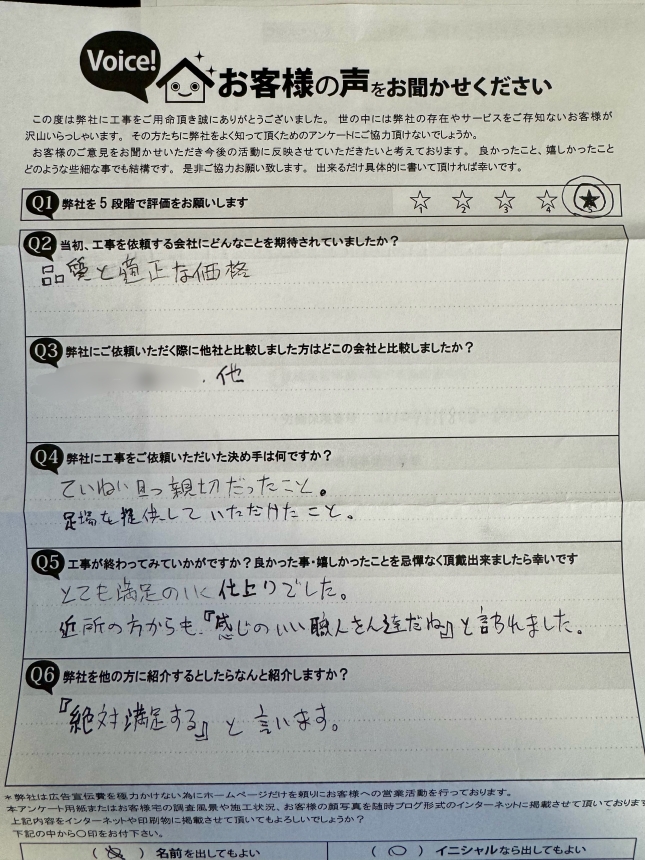 Voice!
お客様の声をお聞かせください
この度は弊社に工事をご用命頂き誠にありがとうございました。 世の中には弊社の存在やサービスをご存知ないお客様が
沢山いらっしゃいます。 その方たちに弊社をよく知って頂くためのアンケートにご協力頂けないでしょうか。
お客様のご意見をお聞かせいただき今後の活動に反映させていただきたいと考えております。 良かったこと、嬉しかったこと
どのような些細な事でも結構です。 是非ご協力お願い致します。 出来るだけ具体的に書いて頂ければ幸いです。
Q1 弊社を5段階で評価をお願いします ☆1 ☆2 ☆3 ☆4 ★5
Q2 当初、工事を依頼する会社にどんなことを期待されていましたか？
品質と適正な価格
Q3 弊社にご依頼いただく際に他社と比較しました方はどこの会社と比較しましたか？
. 他
Q4 弊社に工事をご依頼いただいた決め手は何ですか？
ていねい且つ親切だったこと。
足場を提供していただけたこと。
Q5 工事が終わってみていかがですか？良かった事・嬉しかったことを忌憚なく頂戴出来ましたら幸いです
とても満足のいく仕上りでした。
近所の方からも、『感じのいい職人さん達だね』と言われました。
Q6 弊社を他の方に紹介するとしたらなんと紹介しますか？
『絶対満足する』と言います。
＊弊社は広告宣伝費を極力かけない為にホームページだけを頼りにお客様への営業活動を行っております。
本アンケート用紙またはお客様宅の調査風景や施工状況、お客様の顔写真を随時ブログ形式のインターネットに掲載させて頂いております
上記内容をインターネットや印刷物に掲載させて頂いてもよろしいでしょうか？
下記の中から〇印をお付下さい。
（ ） 名前を出してもよい （ ○ ） イニシャルなら出してもよい